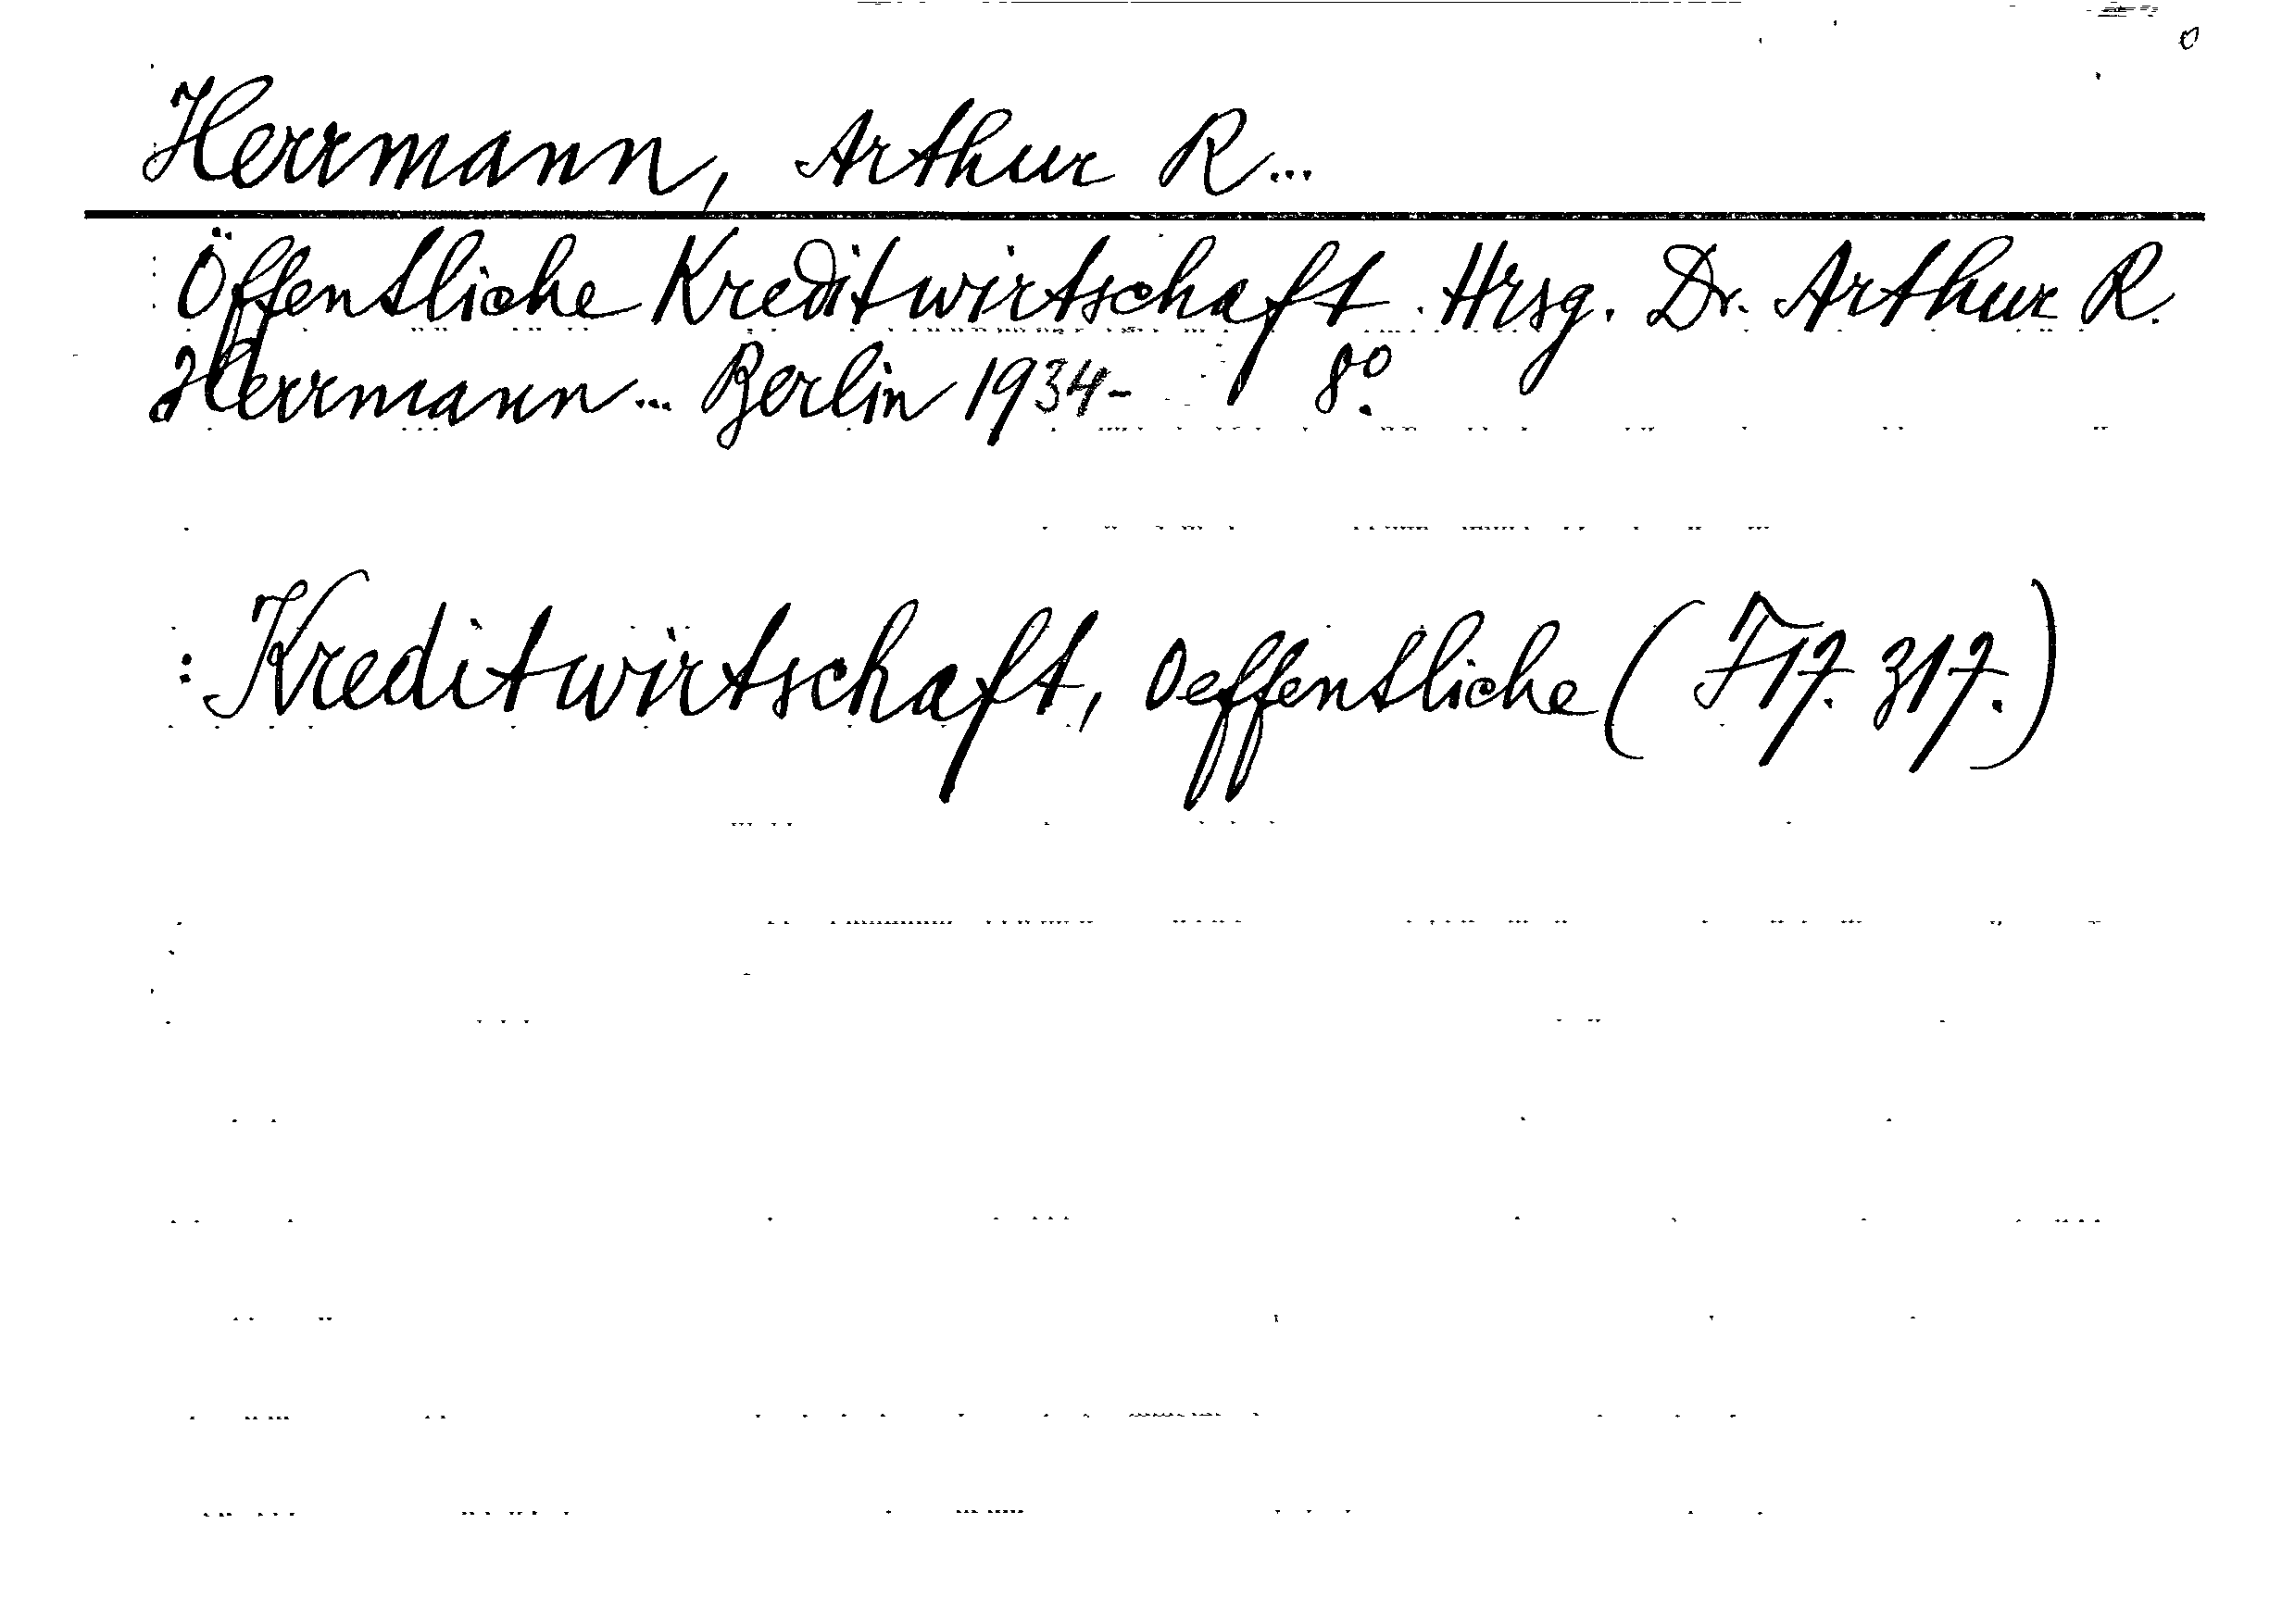 Herrmann, Arthur R...
Öffentliche Kreditwirtschaft. Hrsg. Dr. Arthur R.
Herrmann... Berlin 1934- 8º.
: Kreditwirtschaft, Oeffentliche (F17. 317.)